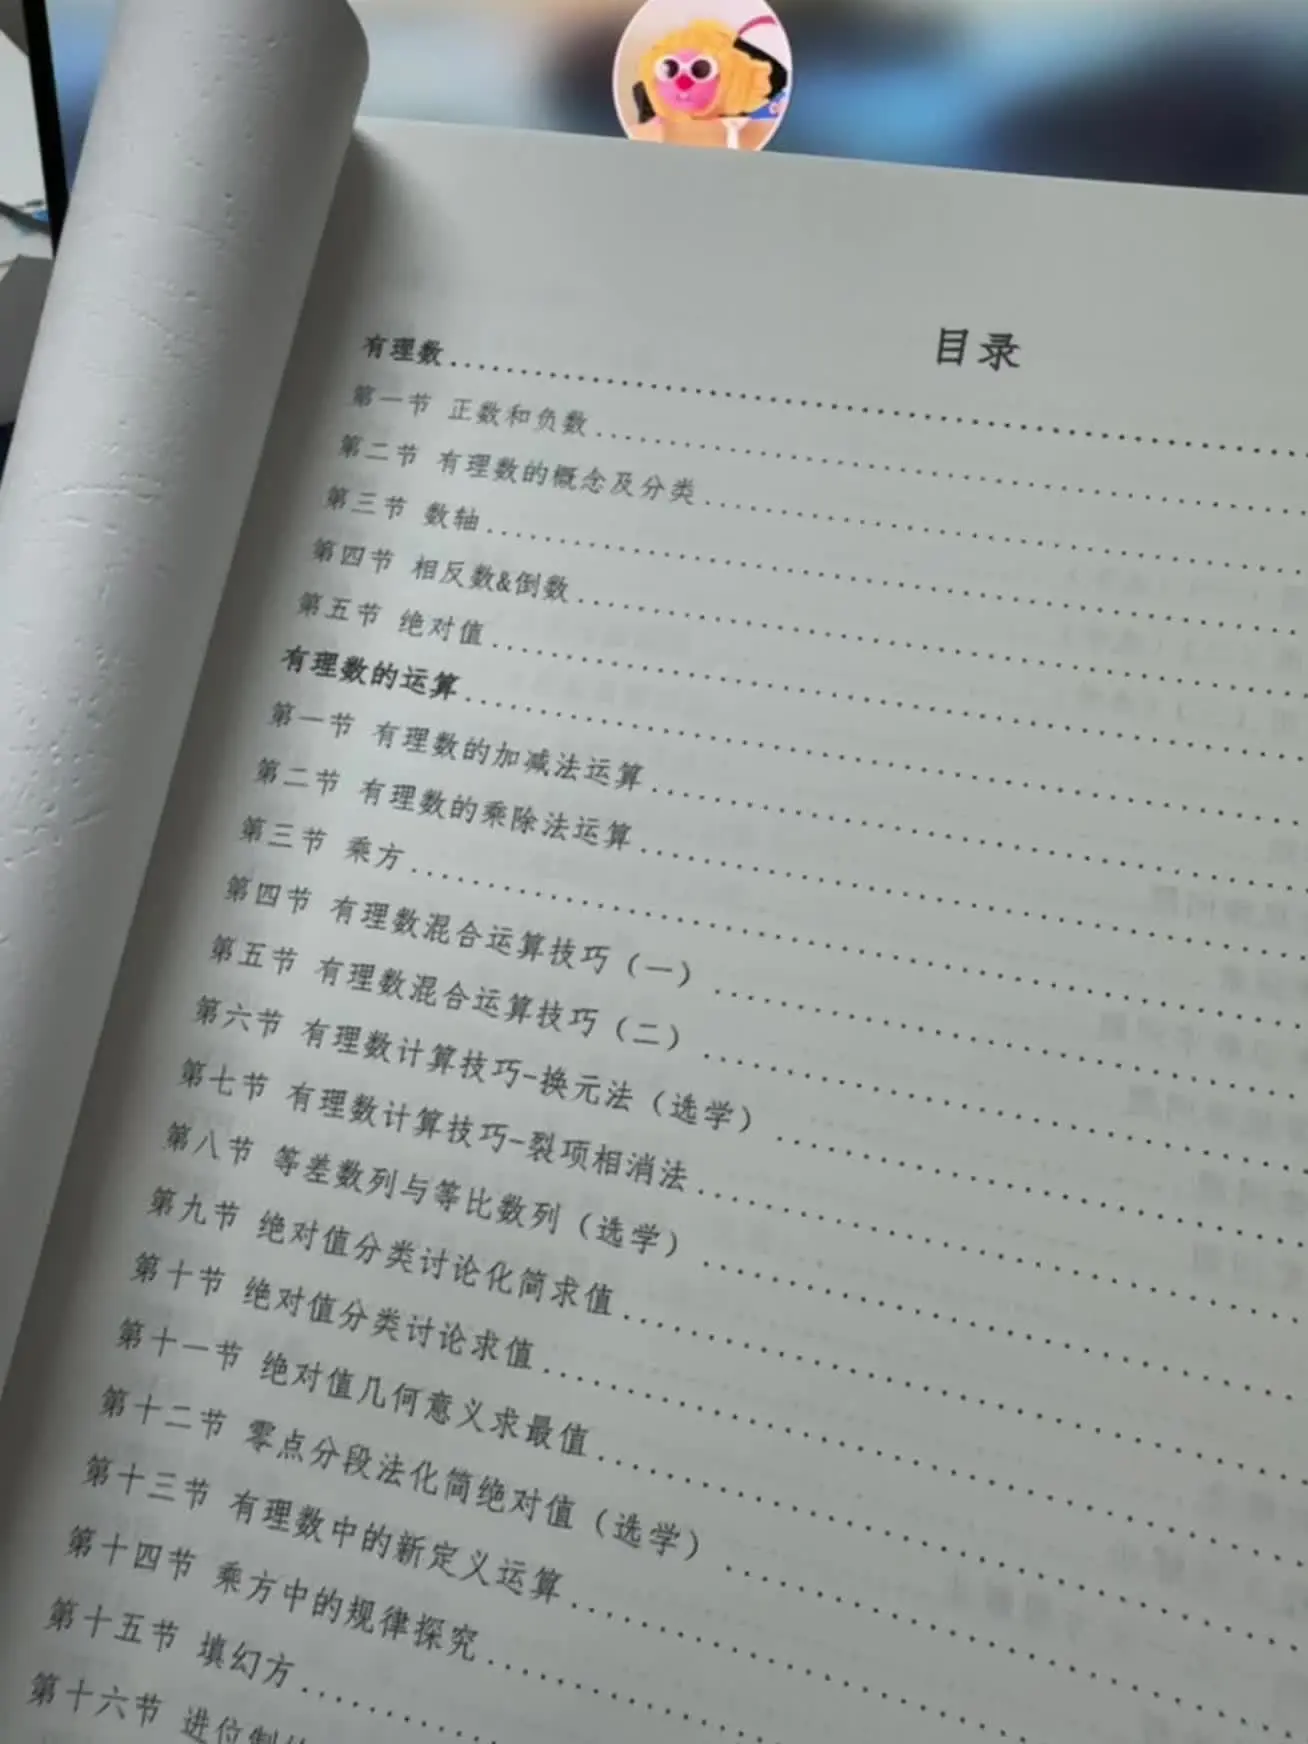 目录
有理数
第一节 正数和负数
第二节 有理数的概念及分类
第三节 数轴
第四节 相反数&倒数
第五节 绝对值
有理数的运算
第一节 有理数的加减法运算
第二节 有理数的乘除法运算
第三节 乘方
第四节 有理数混合运算技巧（一）
第五节 有理数混合运算技巧（二）
第六节 有理数计算技巧-换元法（选学）
第七节 有理数计算技巧-裂项相消法
第八节 等差数列与等比数列（选学）
第九节 绝对值分类讨论化简求值
第十节 绝对值分类讨论求值
第十一节 绝对值几何意义求最值
第十二节 零点分段法化简绝对值（选学）
第十三节 有理数中的新定义运算
第十四节 乘方中的规律探究
第十五节 填幻方
第十六节 进位制